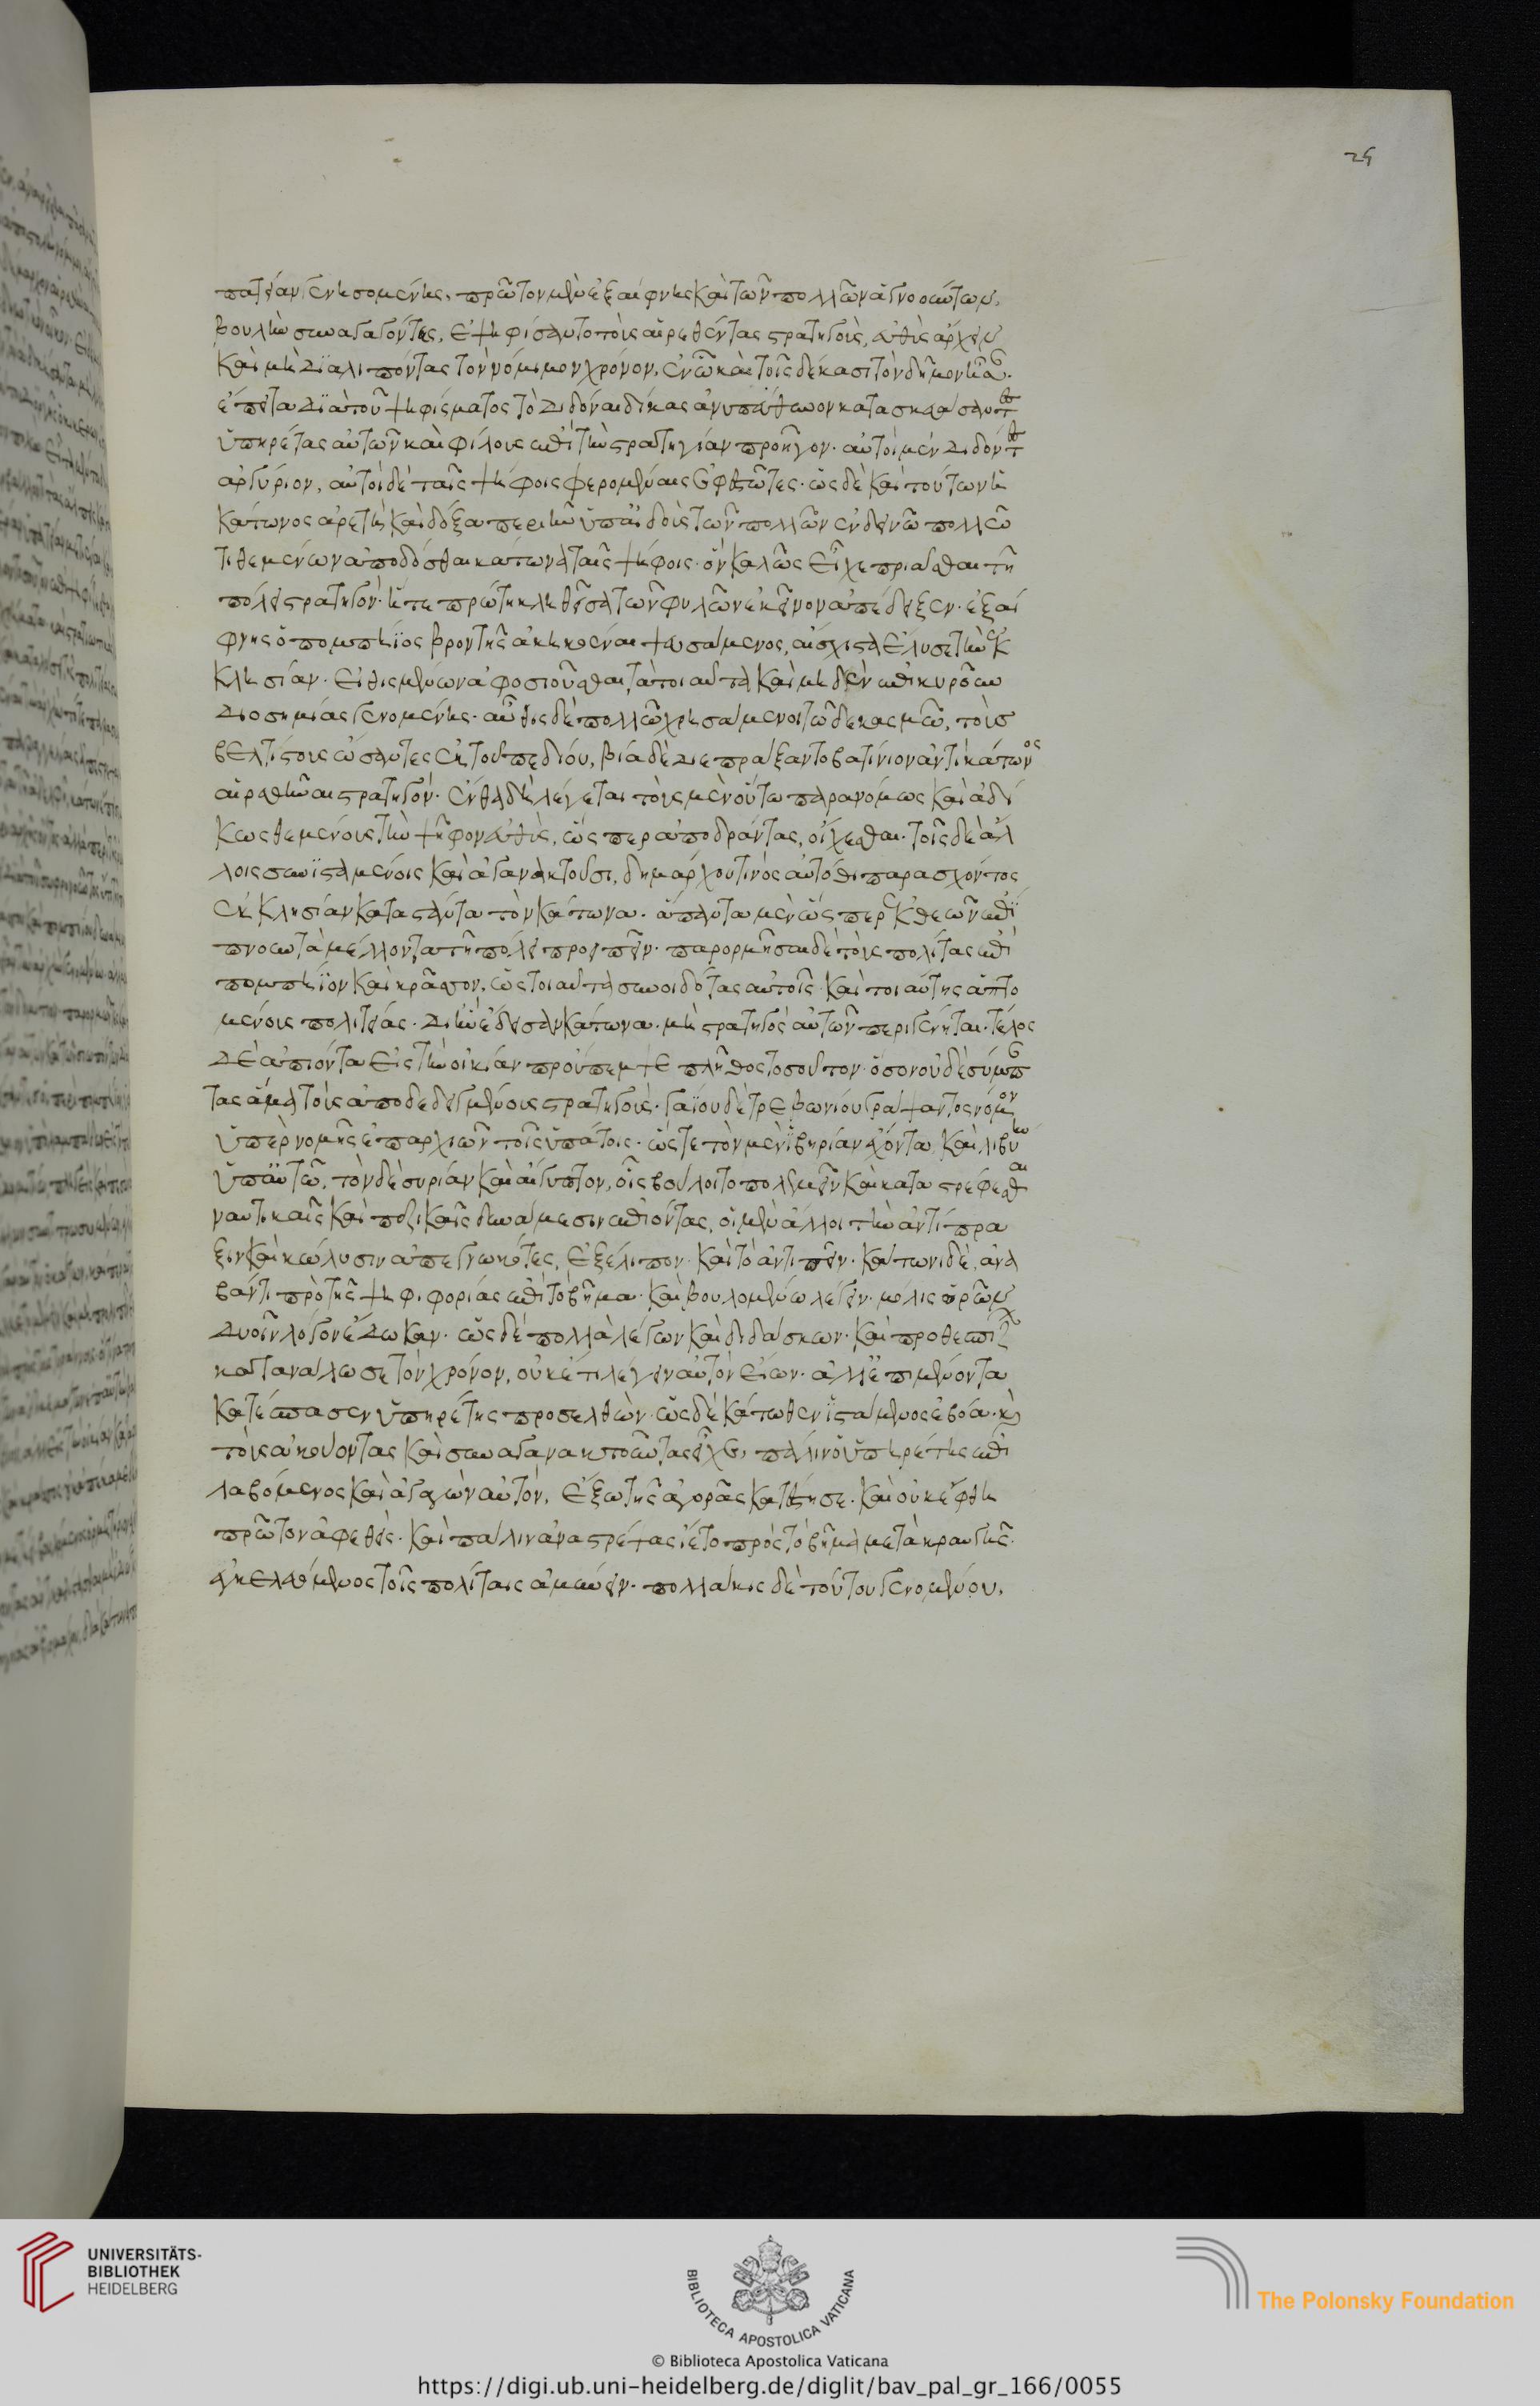 πατείαν γενησομένης. πρῶτον μὲν ἐξαίφνης καὶ τῶν πολλῶν ἀγνοούντων,
βουλὴν συναγαγόντες, ἐψηφίσαντο τοὺς αἱρεθέντας στρατηγοὺς, εὐθὺς ἄρχειν
καὶ μὴ διαλιπόντας τὸν νόμιμον χρόνον, ἐν ᾧ καὶ τοῖς δέκασι τὸν δῆμον ἦσαν.
ἔπειτα διὰ τοῦ ψηφίσματος τὸ διδόναι δίκας ἀνυπεύθυνον κατασκευάσαντες
ὑπηρέτας αὐτῶν καὶ φίλους ἐπὶ τὴν στρατηγίαν προῆγον. αὐτοὶ μὲν διδόντες
ἀργύριον, αὐτοὶ δὲ ταῖς ψήφοις φερομέναις ἐφεστῶτες. ὡς δὲ καὶ τούτων ἡ
κάτωνος ἀρετὴ καὶ δόξα περιῆν ὑπ' αἰδοῦς τῶν πολλῶν ἐν δεινῶ πολλῶ
τιθεμένων ἀποδόσθαι κάτωνα ταῖς ψήφοις. ὃν καλῶς εἶχε πρίασθαι τῆ
πόλει στρατηγόν. ἥ τε πρώτη κληθεῖσα τῶν φυλῶν ἐκεῖνον ἀπέδειξεν. ἐξαί
φνης ὁ πομπήϊος βροντῆς ἀκηκοέναι ψευσάμενος, αἴσχιστα ἔλυσε τὴν ἐκ
κλησίαν. εἰθισμένων ἀφοσιοῦσθαι τὰ τοιαῦτα καὶ μηδὲν ἐπικυροῦν
διοσημίας γενομένης. αὖθις δὲ πολλῶ χρησάμενοι τῶ δεκασμῶ, τοὺς
βελτίστους ὤσαντες ἐκ τοῦ πεδίου, βία δὲ διεπράξαντο βατίνιον ἀντὶ κάτωνος
αἱρεθῆναι στρατηγόν. ἔνθα δὴ λέγεται τοὺς μὲν οὕτω παρανόμως καὶ ἀδί
κως θεμένους τὴν ψῆφον εὐθὺς, ὥσπερ ἀποδράντας, οἴχεσθαι. τοῖς δὲ ἄλ
λοις συνισταμένοις καὶ ἀγανακτοῦσι, δημάρχου τινὸς αὐτόθι παρασχόντος
ἐκκλησίαν καταστάντα τὸν κάτωνα. ἅπαντα μὲν ὥσπερ ἐκ θεῶν ἐπί
πνουν τὰ μέλλοντα τῆ πόλει προειπεῖν. παρορμῆσαι δὲ τοὺς πολίτας ἐπὶ
πομπήϊον καὶ κράσσον, ὡς τοιαῦτα συνοιδότας αὐτοῖς καὶ τοιαύτης ἁπτο
μένοις πολιτείας. δι' ἣν ἔδεισαν κάτωνα. μὴ στρατηγὸς αὐτῶν περιγένηται. τέλος
δὲ ἀπιόντα εἰς τὴν οἰκίαν προύπεμψε πλῆθος τοσοῦτον. ὅσον οὐδὲ σύμπαν
τας ἅμα τοὺς ἀποδεδειγμένους στρατηγούς. γαΐου δὲ τρεβωνίου γράψαντος νόμον
ὑπὲρ νομῆς ἐπαρχιῶν τοῖς ὑπάτοις. ὥστε τὸν μὲν ἰβηρίαν ἔχοντα καὶ λιβύην
ὑπ' αὐτῶ, τὸν δὲ συρίαν καὶ αἴγυπτον, οἷς βούλοιτο πολεμεῖν καὶ καταστρέφεσθαι
ναυτικαῖς καὶ πεζικαῖς δυνάμεσιν ἐπιόντας, οἱ μὲν ἄλλοι τὴν ἀντίπρα
ξιν καὶ κώλυσιν ἀπεγνωκότες, ἐξέλιπον καὶ τὸ ἀντιπεῖν. κάτωνι δὲ, ἀνα
βάντι πρὸ τῆς ψηφιφορίας ἐπὶ τὸ βῆμα. καὶ βουλομένω λέγειν. μόλις ὡρῶν
δυοῖν λόγον ἔδωκαν. ὡς δὲ πολλὰ λέγων καὶ διδάσκων. καὶ προθεσπίζων
κατανάλωσε τὸν χρόνον, οὐκέτι λέγειν αὐτὸν εἴων. ἀλλ' ἐπιμένοντα
κατέσπασεν ὑπηρέτης προσελθών. ὡς δὲ κάτωθεν ἱστάμενος ἐβόα. καὶ
τοὺς ἀκούοντας καὶ συναγανακτοῦντας εἶχεν, πάλιν ὁ ὑπηρέτης ἐπι
λαβόμενος καὶ ἀγαγὼν αὐτόν, ἔξω τῆς ἀγορᾶς κατέστησε. καὶ οὐκ ἔφθη
πρῶτον ἀφεθείς. καὶ πάλιν ἀναστρέψας ἵετο πρὸς τὸ βῆμα μετὰ κραυγῆς.
ἐγκελευόμενος τοῖς πολίταις ἀμύνειν. πολλάκις δὲ τούτου γενομένου,
UNIVERSITÄTS-
BIBLIOTHEK
HEIDELBERG
BIBLIOTECA APOSTOLICA VATICANA
The Polonsky Foundation
© Biblioteca Apostolica Vaticana
https://digi.ub.uni-heidelberg.de/diglit/bav_pal_gr_166/0055